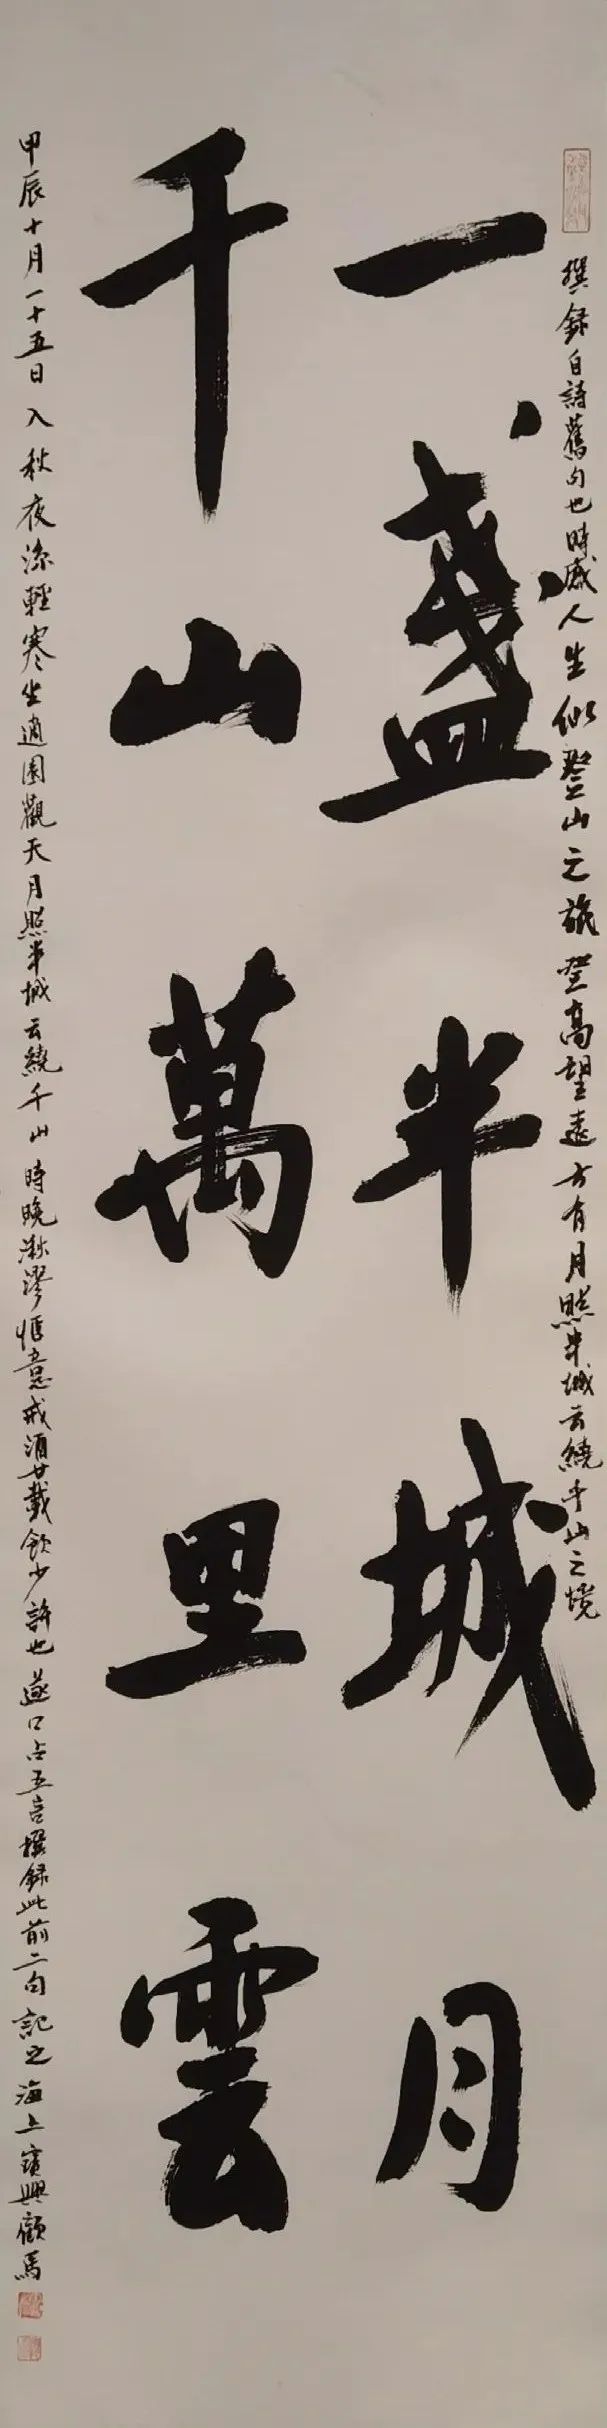 撰録自詩舊句也時感人生似登山之旅登高望遠方有月照半城云繞千山之境
一盞半城月
千山萬里雲
甲辰十月一十五日入秋夜涼輕寒坐適園觀天月照半城云繞千山時晚漱謬惬意戒酒廿載飲少許也遂口占五言撰録此前二句記之海上寶興顧馬